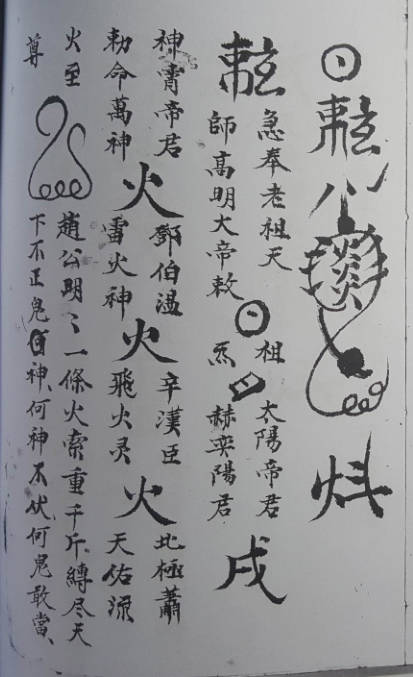 急奉老祖天
師高明大帝敕
祖
炁
太陽帝君
赫奕陽君
戌
神霄帝君
勅命萬神
火
鄧伯温
雷火神
火
辛漢臣
飛火灵
火
北極蕭
天佑流
火至
尊
趙公明〻一條火索重千斤、縛尽天
下不正鬼神、何神不伏何鬼敢當、